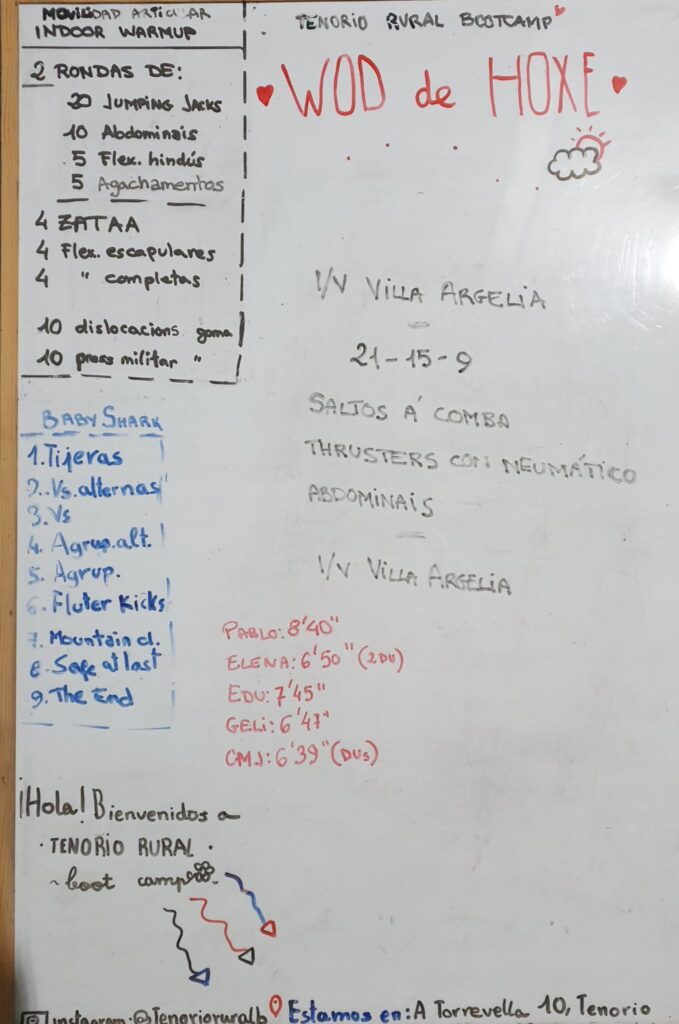 MOVILIDAD ARTICULAR
INDOOR WARMUP
2 RONDAS DE:
20 JUMPING JACKS
10 Abdominais
5 Flex. hindús
5 Agachamentos
4 ZATAA
4 Flex. escapulares
4 " completas
10 dislocacions goma
10 press militar "
BABY SHARK
1. Tijeras
2. Vs. alternas
3. Vs
4. Agrup. alt.
5. Agrup.
6. Fluter Kicks
7. Mountain cl.
8. Safe at last
9. The End
TENORIO RURAL BOOTCAMP
WOD de HOXE
I/V VILLA ARGELIA
21-15-9
SALTOS Á COMBA
THRUSTERS CON NEUMÁTICO
ABDOMINAIS
I/V VILLA ARGELIA
PABLO: 8'40"
ELENA: 6'50" (2DU)
EDU: 7'45"
GELI: 6'47"
CMJ: 6'39" (DUs)
¡Hola! Bienvenidos a
· TENORIO RURAL ·
~ boot camp
instagram: @Tenorioruralb
Estamos en: A Torrevella 10, Tenorio